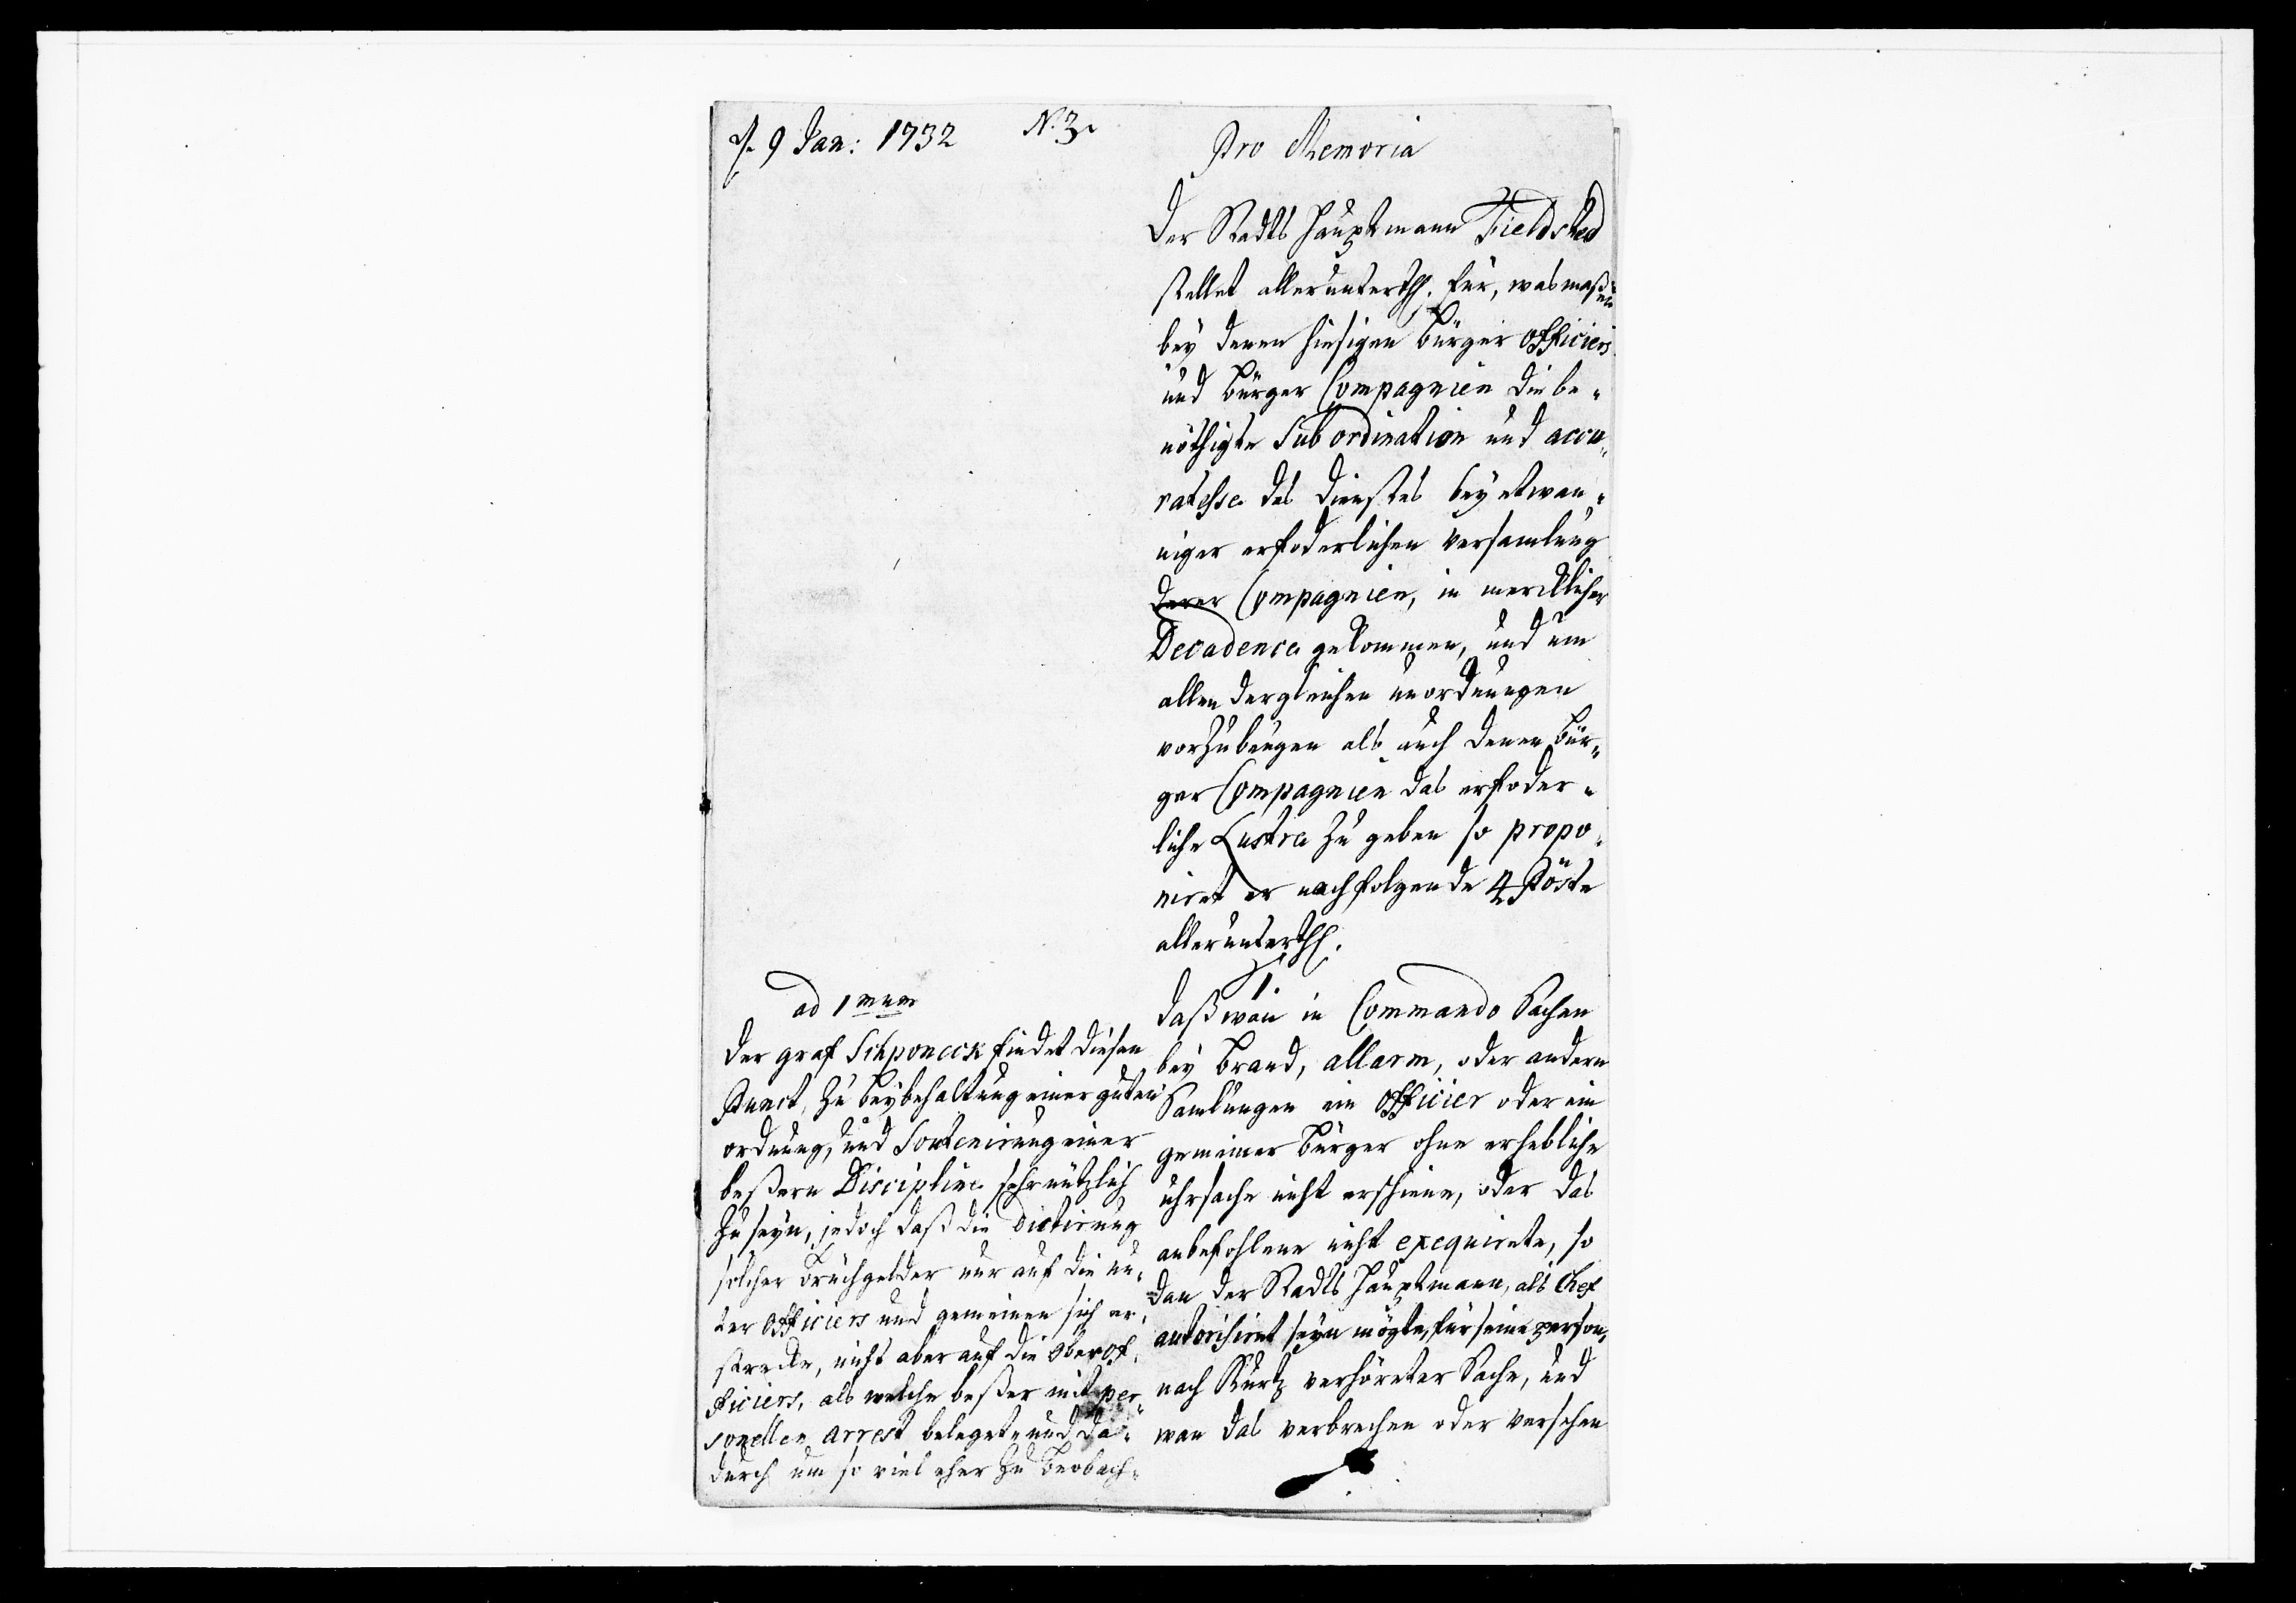 d. 9 Jan: 1732
N. 3.
Pro Memoria
Der Stadts Hauptmann Fieldsted
stellet allerunterth. für, was maßen
bey denen hiesigen Bürger Officiers
und Bürger Compagnien die be-
nöthigte Subordination und accu-
ratesse des Dienstes bey etwan-
niger erfoderlichen Versamlung
derer Compagnien, in mercklicher
Decadence gekommen, und um
allen dergleichen unordnungen
vorzubeugen als auch denen Bür-
ger Compagnien das erfoder-
liche Lustre zu geben so propo-
niret er nachfolgende 4 Pöste
allerunterth.
1.
Daß wan in Commando Sachen
bey Brand, allarm, oder andern
Samlungen ein Officier oder ein
gemeiner Bürger ohne erhebliche
uhrsache nicht erschiene, oder das
anbefohlene nicht exequirete, so
dan der Stadts Hauptmann, als Chef
autorisiret seyn mögte, für seine person,
nach Kurtz verhöreter Sache, und
wan das verbrechen oder versehen
ad 1mum
Der graf Schponeck findet diesen
Punct, zu beybehaltung einer guten
ordnung, und Soutenirung einer
beßern Discipline sehr nützlich
zu seyn, jedoch daß die Dictirung
solcher Brüchgelder nur auf die un-
ter Officiers und gemeinen sich er-
strecke, nicht aber auf die Ober of-
ficiers, als welche beßer mit per-
sonellen arrest beleget, und da-
durch um so viel eher zu beobach-